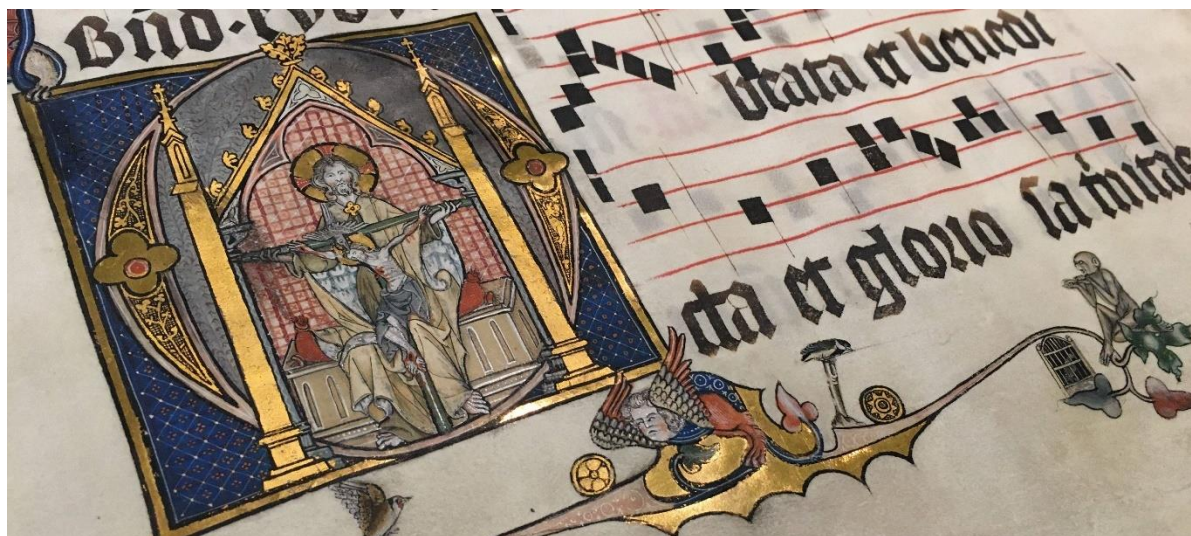 Bñd.
O beata et benedi
cta et glorio sa tⁱnitas